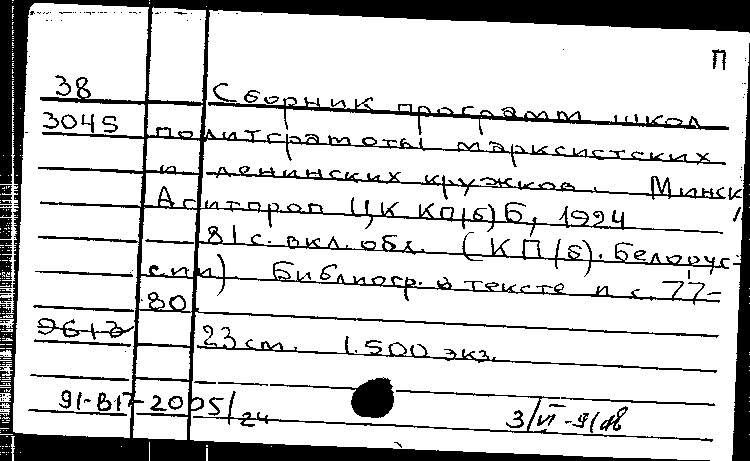 П
38 Сборник программ школ
3045 политграмоты марксистских
и ленинских кружков. Минск,
Агитпроп ЦК КП(б)Б, 1924
81 с. вкл. обл. (КП(б). Белорус-
сии) Библиогр. в тексте и с. 77-
80.
23 см. 1.500 экз.
91-В17-2005/24
3/VI-91